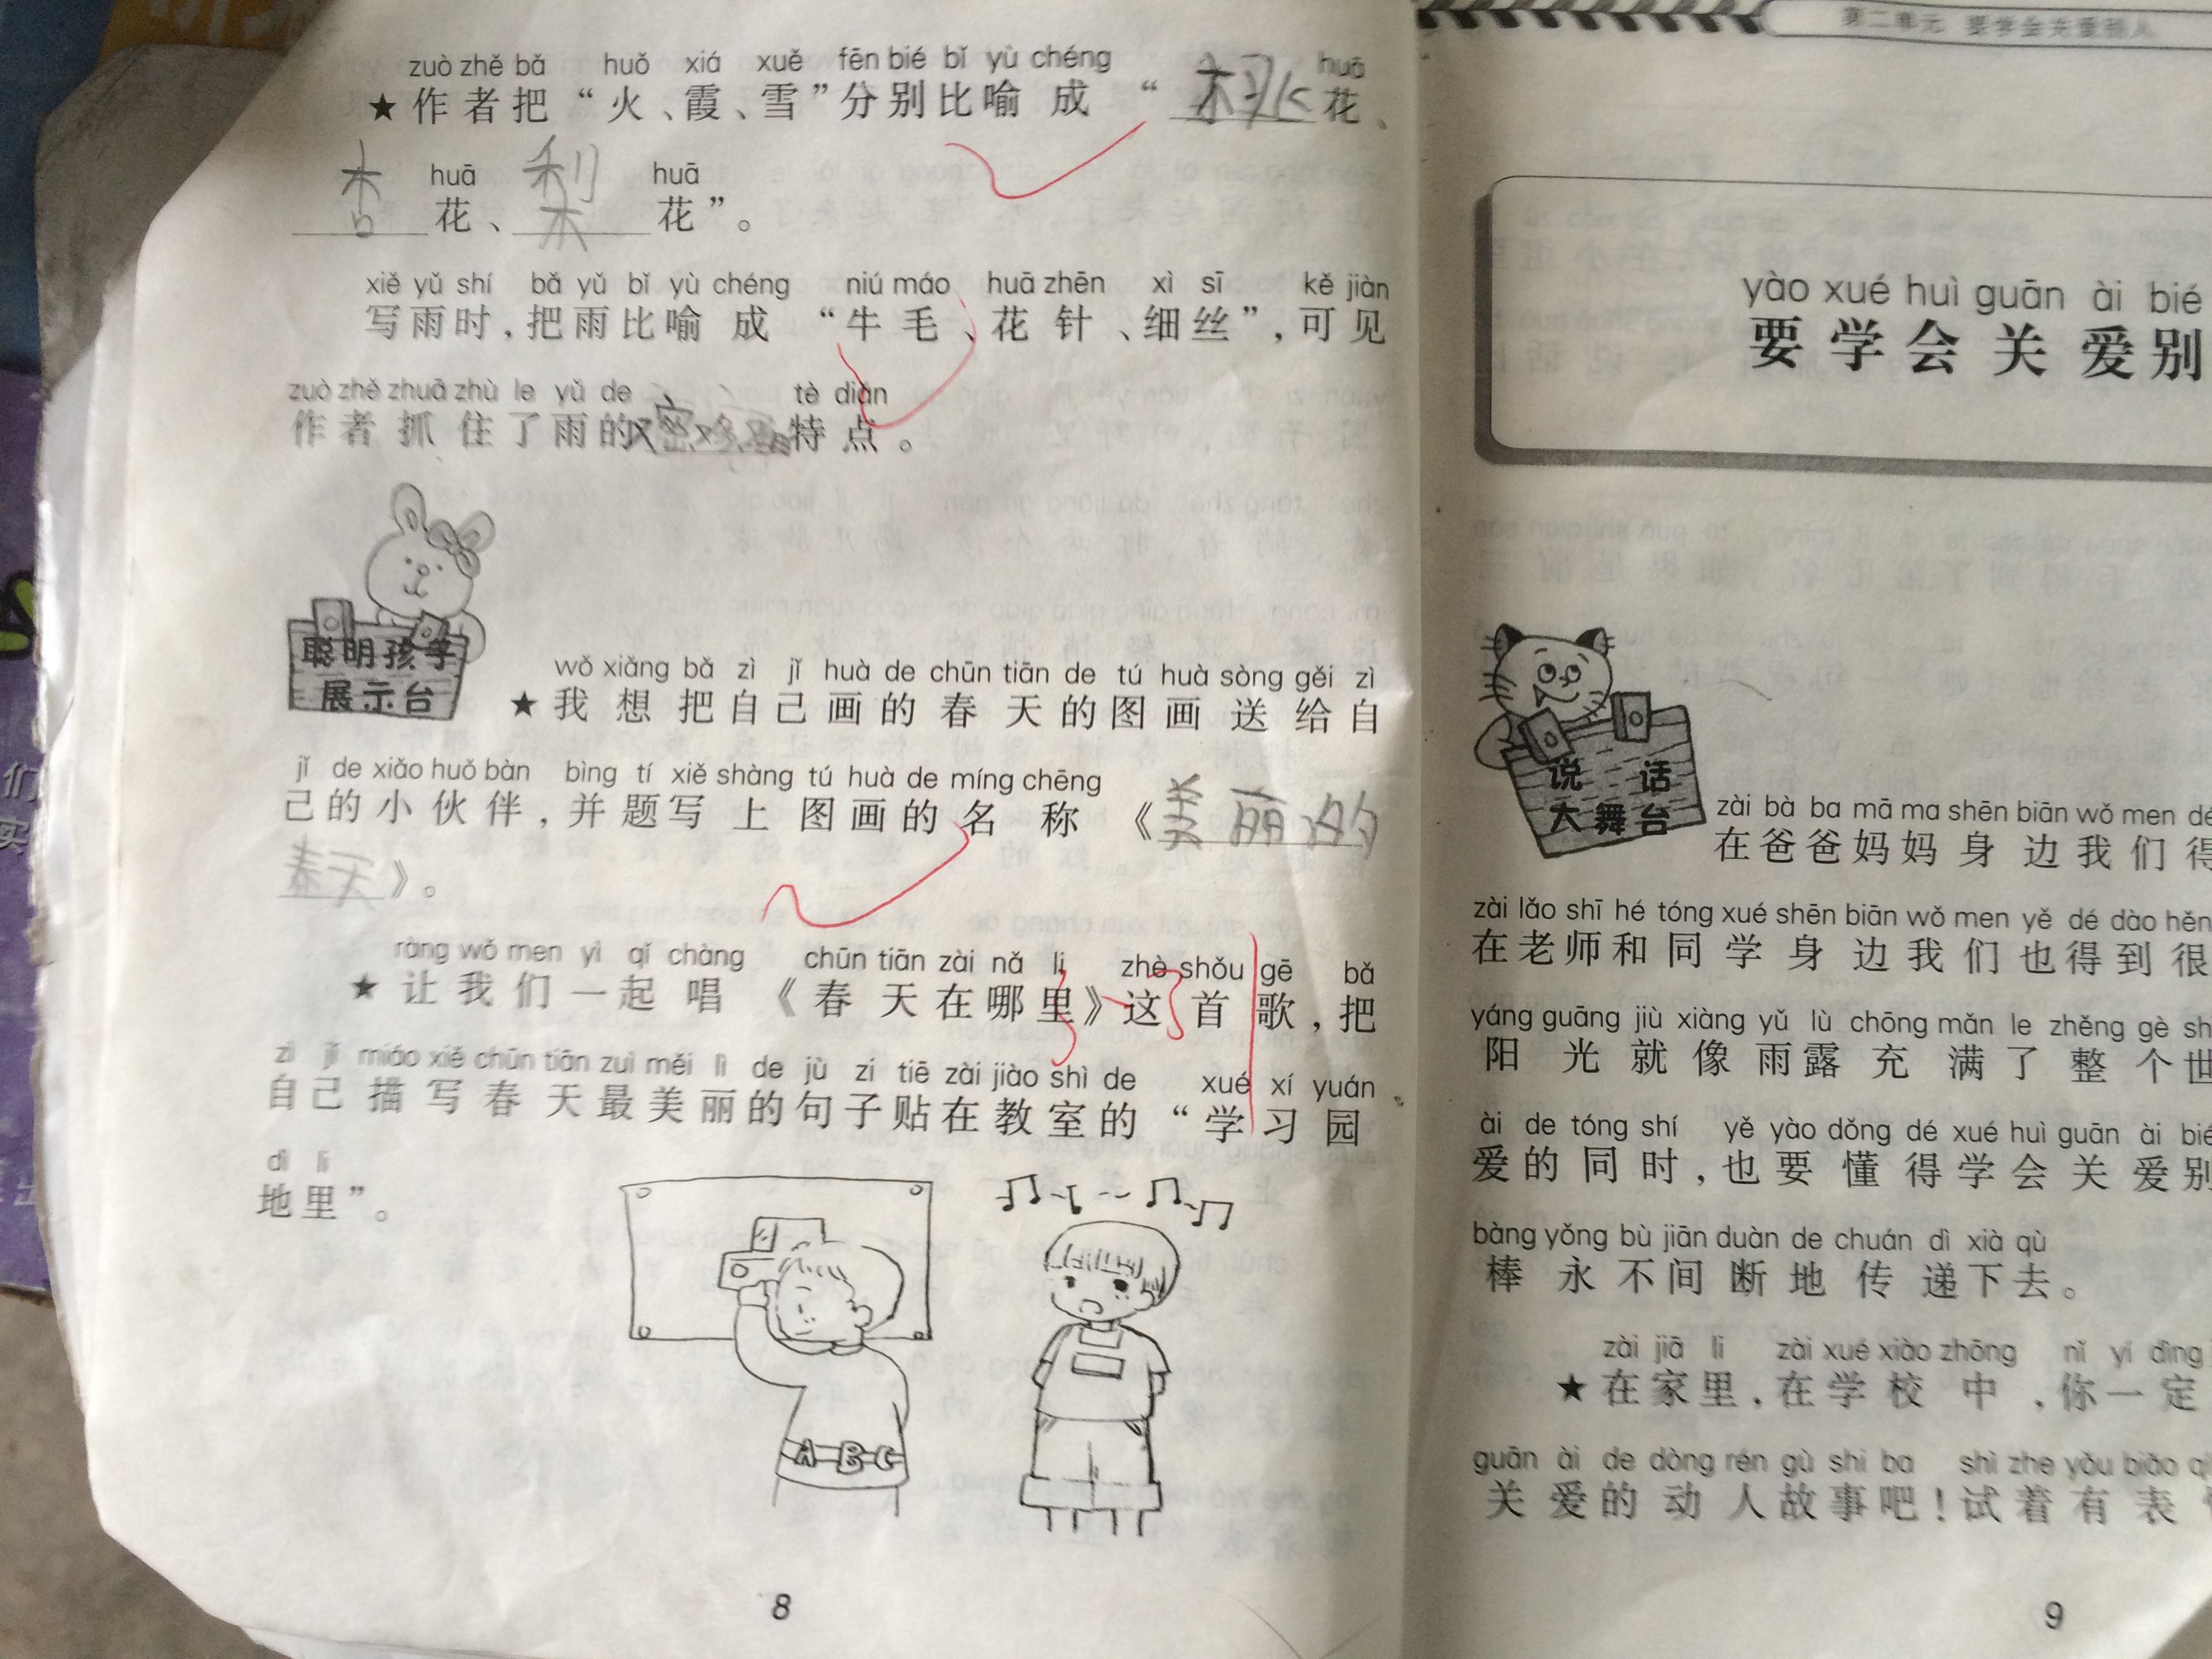 zuò zhě bǎ huǒ xiá xuě fēn bié bǐ yù chéng huā
★作者把“火、霞、雪”分别比喻成“桃花、
huā huā
杏花、梨花”。
xiě yǔ shí bǎ yǔ bǐ yù chéng niú máo huā zhēn xì sī kě jiàn
写雨时,把雨比喻成“牛毛、花针、细丝”,可见
zuò zhě zhuā zhù le yǔ de tè diǎn
作者抓住了雨的特点。
聪明孩子
展示台
wǒ xiǎng bǎ zì jǐ huà de chūn tiān de tú huà sòng gěi zì
★我想把自己画的春天的图画送给自
jǐ de xiǎo huǒ bàn bìng tí xiě shàng tú huà de míng chēng
己的小伙伴,并题写上图画的名称《美丽的
春天》。
ràng wǒ men yì qǐ chàng chūn tiān zài nǎ li zhè shǒu gē bǎ
★让我们一起唱《春天在哪里》这首歌,把
zì jǐ miáo xiě chūn tiān zuì měi lì de jù zi tiē zài jiào shì de xué xí yuán
自己描写春天最美丽的句子贴在教室的“学习园
dì li
地里”。
A B C
8
第二单元 要学会关爱别人
yào xué huì guān ài bié
要学会关爱别
说话
大舞台
zài bà ba mā ma shēn biān wǒ men dé
在爸爸妈妈身边我们得
zài lǎo shī hé tóng xué shēn biān wǒ men yě dé dào hěn
在老师和同学身边我们也得到很
yáng guāng jiù xiàng yǔ lù chōng mǎn le zhěng gè sh
阳光就像雨露充满了整个世
ài de tóng shí yě yào dǒng dé xué huì guān ài bié
爱的同时,也要懂得学会关爱别
bàng yǒng bù jiān duàn de chuán dì xià qù
棒永不间断地传递下去。
zài jiā li zài xué xiào zhōng nǐ yí dìng
★在家里,在学校中,你一定
guān ài de dòng rén gù shi ba shì zhe yǒu biǎo q
关爱的动人故事吧!试着有表
9